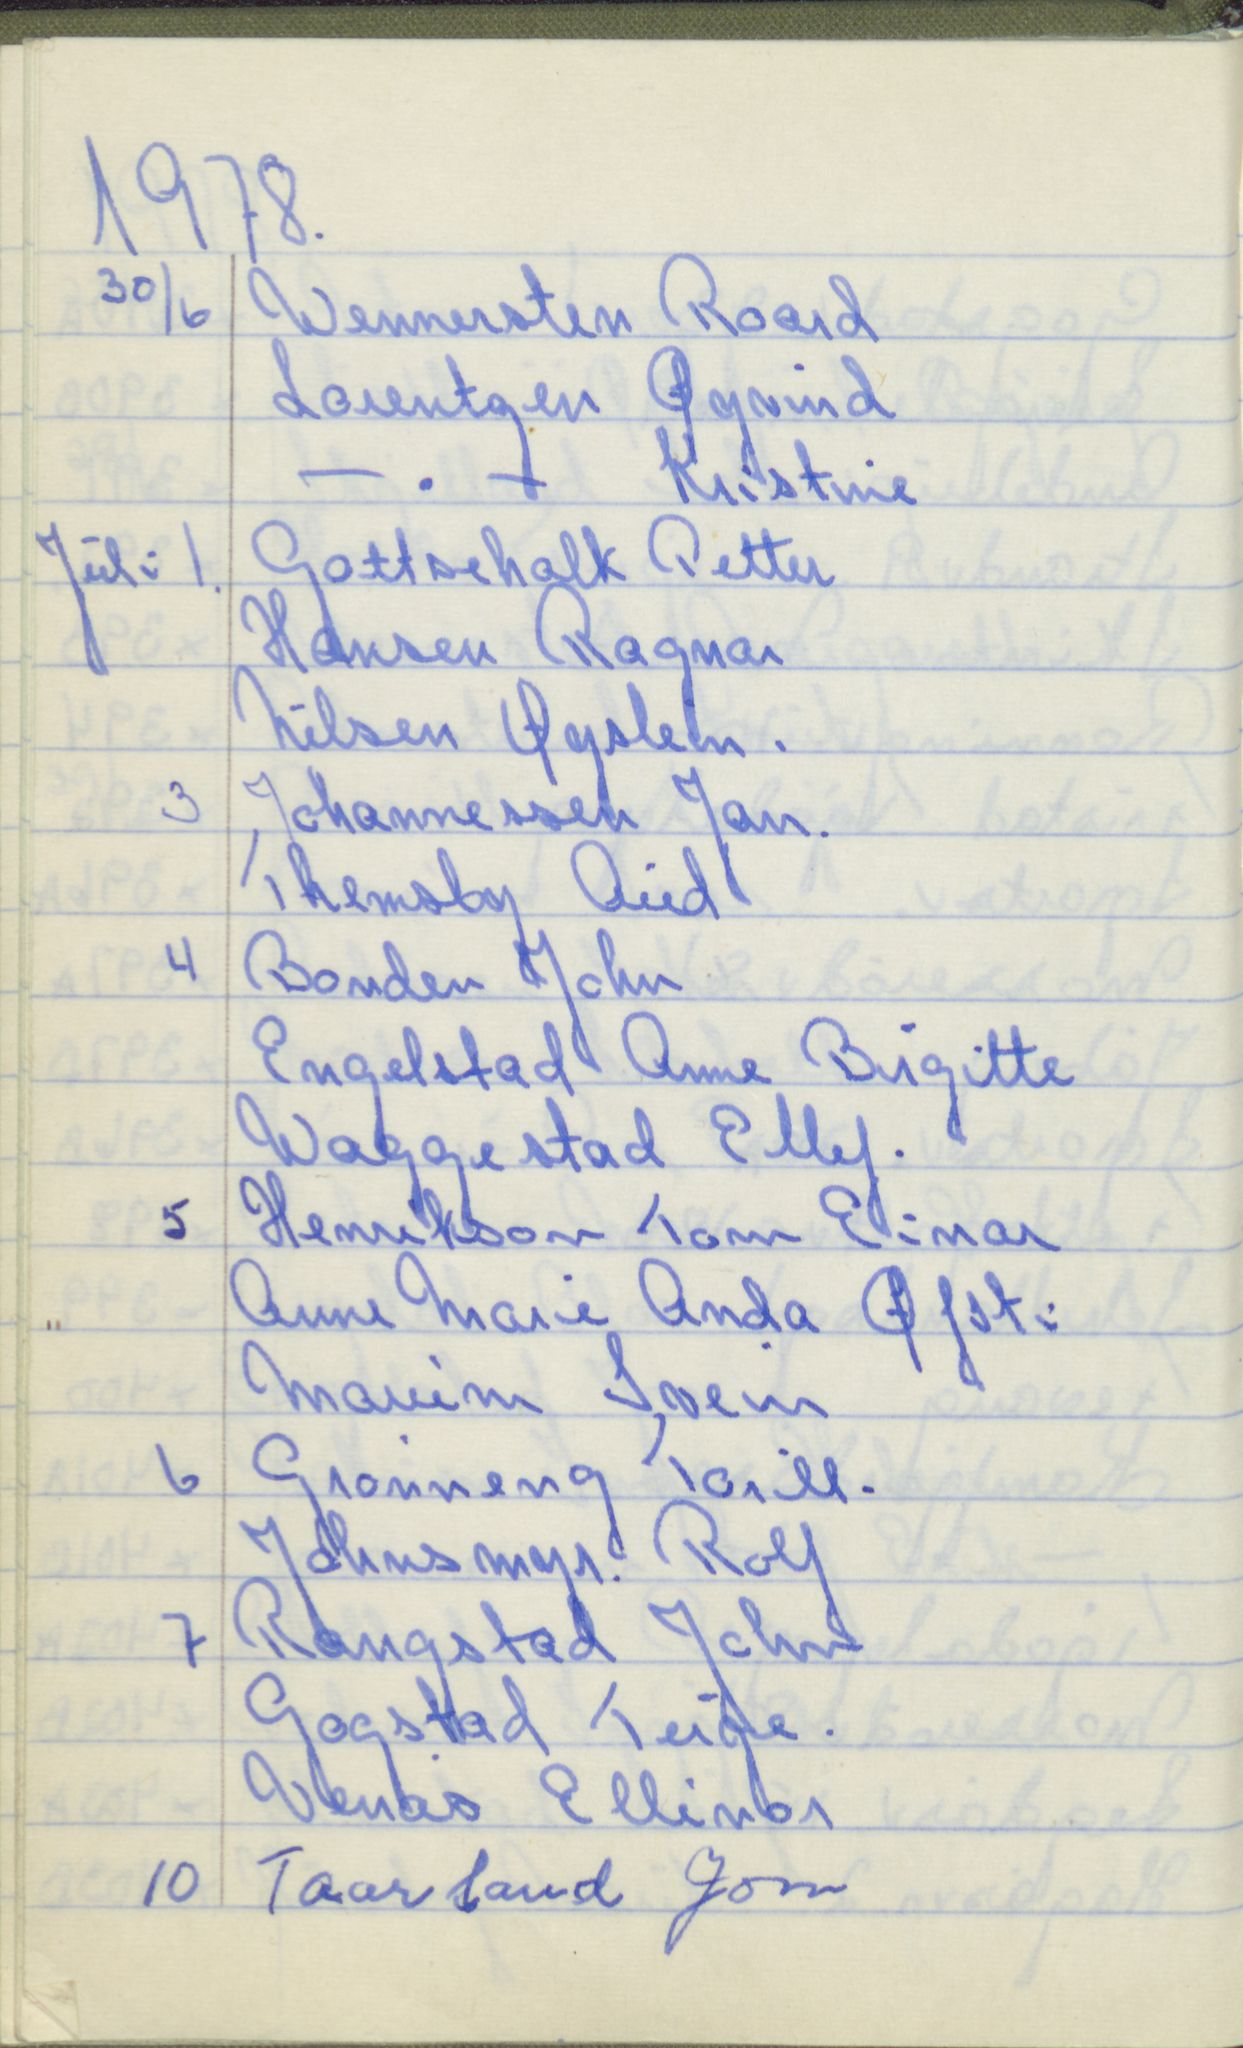 1978.
30/6 Wennersten Roard
Lorentzen Øyvind
— . — Kristine
Juli 1. Gottschalk Petter
Hansen Ragnar
Nilsen Øystein.
3 Johannessen Jan.
Themsby Aud
4 Bonden John
Engelstad Anne Birgitte
Waggestad Elley.
5 Henrikson Tom Einar
" Anne Marie Anda Øfsti
Svein
6 Grønneng Torill.
Johnsmyr. Rolf
7 Rangstad John
Gogstad Terje.
Venås Ellinor
10 Taarland Jom